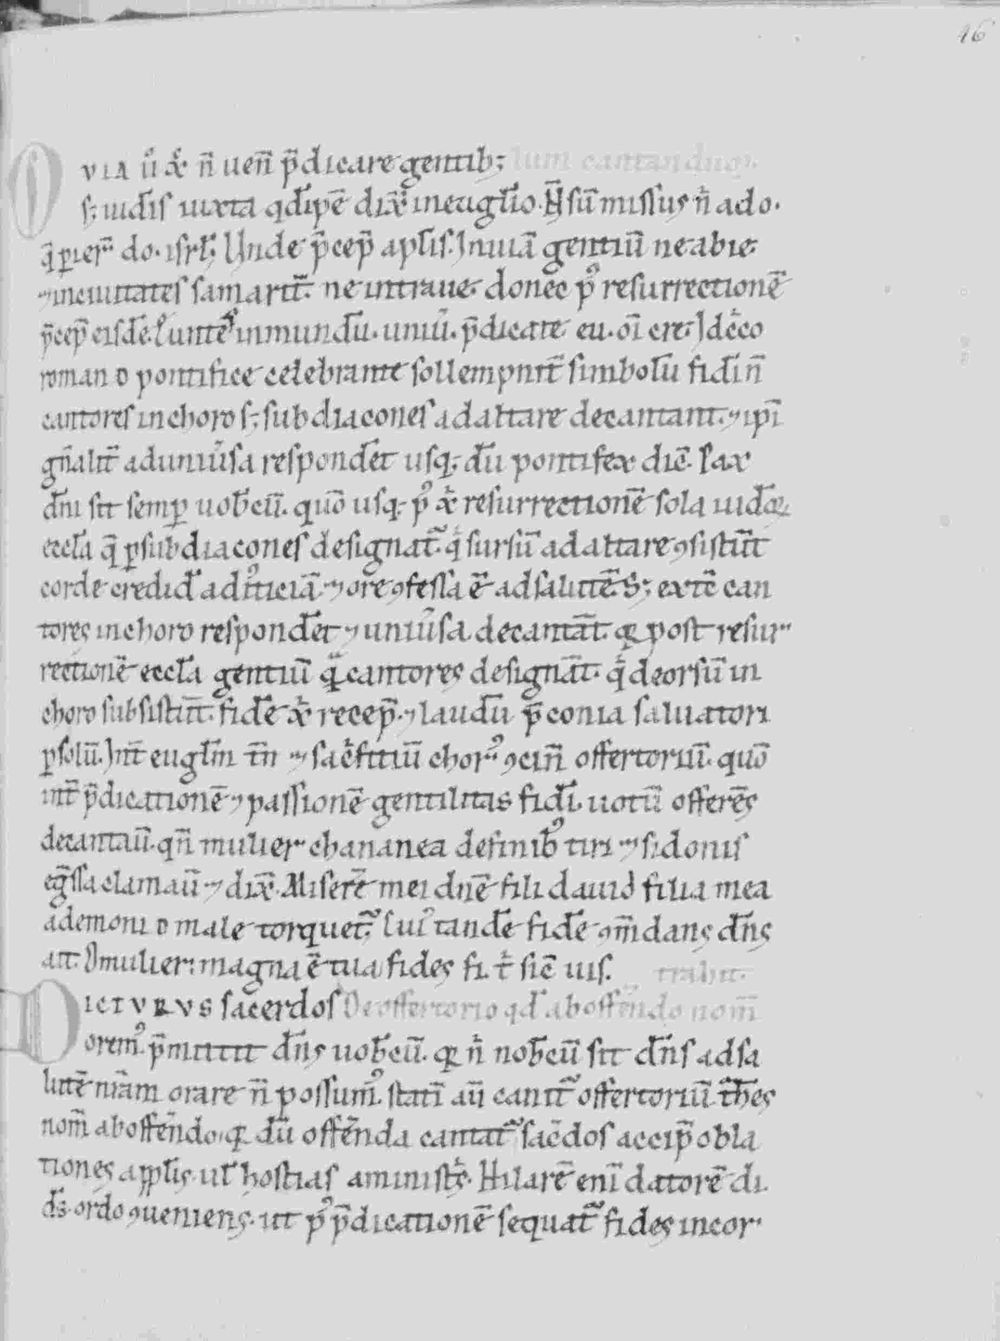 QVIA ů xc̄ n̄ uen̄ p̄dicare gentib; lum cantandum.
s; iudēis iuxta qd̄ ipē dix̄ in euglīo. Ñ sū missus n̄ ad o.
q̄ perier̄ do. isrl̄; Unde p̄cep̄ aplīs. In uiā gentiū ne abie.
⁊ in ciuitates samarit̄. ne intraue. donec p̄ resurrectionē
p̄cep̄ eisdē. Euntes in mundū. uniū. p̄dicate eu. oī cre. Idc̄o
romano pontifice celebrante sollempnit̄ simbolū fidī n̄
cantores in choro s; subdiacones ad altare decantant. ⁊ ip̄i
gn̄alit̄ ad uniūsa respondēt usq; dū pontifex dic̄. Pax
dn̄i sit semp̄ uob̄cū. quō usq; p̄ xp̄i resurrectionē sola iudęa
ęccl̄a q̄ p subdiacones designat̄. q̄ sursū ad altare ꝯsistūt
corde credid̄ ad iusticiā. ⁊ ore ꝯfessa ē ad salutē. S; ex tc̄ can
tores in choro respondēt ⁊ uniūsa decantāt. qꝛ post resur
rectionē eccl̄a gentiū quā cantores designāt. q̄ deorsū in
choro subsistun̄t. fidē xp̄i recep̄. ⁊ laudū p̄conia saluatori
p̄solū. Int̄ euglīm tn̄ ⁊ sac̄ficiū chorus ꝯcin̄ offertoriū. quō
int̄ p̄dicationē ⁊ passionē gentilitas fidī uotū offerēs
decantaū. qn̄ mulier chananea de finib; tiri ⁊ sidonis
eḡssa clamaū ⁊ dix̄. Miserē mei dn̄e fili dauid filia mea
a demonio male torquet̄. Cui tandē fidē ꝯm̄dans dn̄s
ait. O mulier: magna ē tua fides fi. t̄ sic̄ uis. trahit.
DICTVRVS sacerdos De offertorio qd̄ ab offēndo nom̄
orem̄. p̄mittit dn̄s uob̄cū. qꝛ n̄ nob̄cū sit dn̄s ad sa
lutē nr̄am orare n̄ possum̄. statī aū canit̄ offertoriū. th̄es
nom̄ ab offēndo. qꝛ dū offēnda cantat̄ sac̄dos accip̄ obla
tiones a pplīs. ut̄ hostias a ministr̄. Hilarē enī datorē di.
ds̄. ordo ꝯueniens. ut p̄ p̄dicationē sequat̄ fides in cor